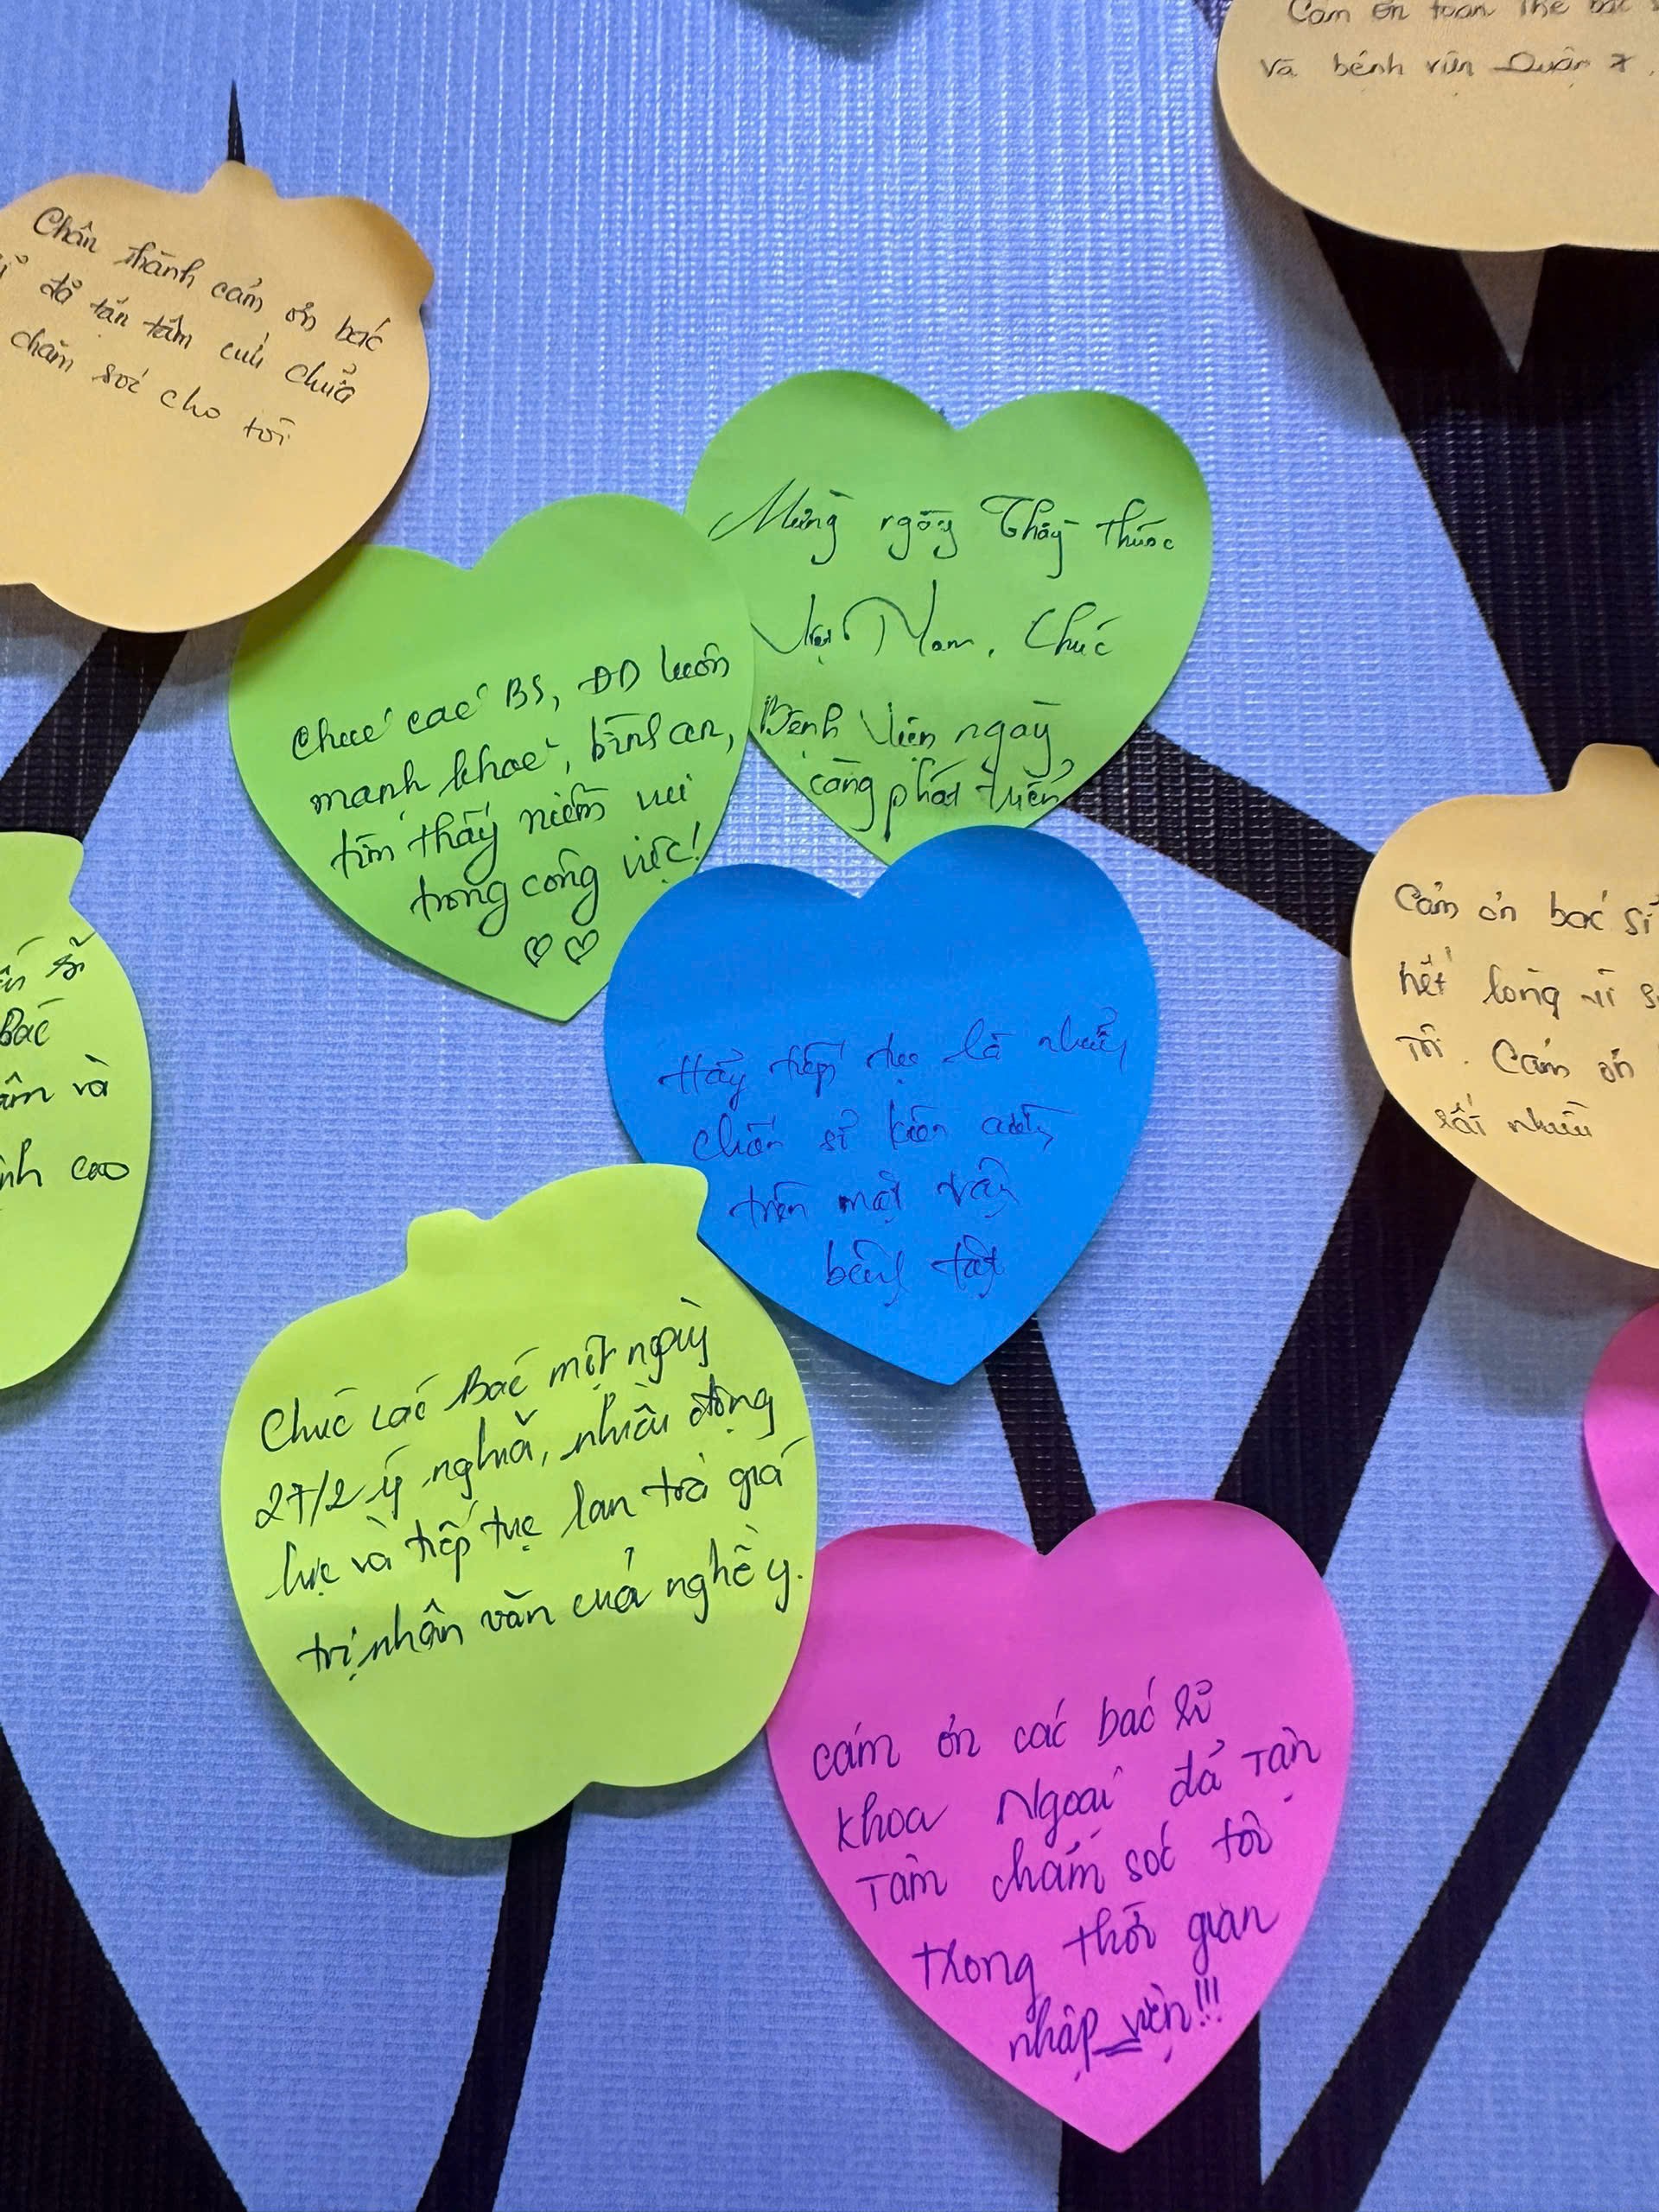 Cám ơn toàn thể bác
và bệnh viện Quận 7.
Chân thành cảm ơn bác
sĩ đã tận tâm cứu chữa
chăm sóc cho tôi
Mừng ngày Thầy thuốc
Việt Nam. Chúc
Bệnh Viện ngày
càng phát triển
Chúc các BS, ĐD luôn
mạnh khoẻ, bình an,
tìm thấy niềm vui
trong công việc!
Bác
và
cao
Cảm ơn bác sĩ
hết lòng vì
tôi. Cám ơn
rất nhiều
Hãy tiếp tục là những
chiến sĩ kiên cường
trên mặt trận
bệnh tật
Chúc các Bác một ngày
27/2 ý nghĩa, nhiều động
lực và tiếp tục lan toả giá
trị nhân văn của nghề y.
cám ơn các bác sĩ
khoa Ngoại đã Tận
Tâm chăm sóc tôi
trong thời gian
nhập viện!!!